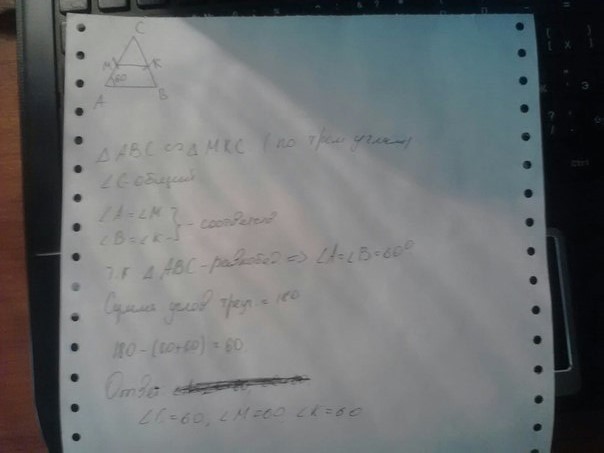 C
M K
60
A B
△ABC ∾ △MKC (по трём углам)
∠C общий
∠A = ∠M
∠B = ∠K } -
Т.к △ABC - равнобед => ∠A = ∠B = 60°
Сумма углов треуг. = 180
180 - (60+60) = 60.
Ответ
∠C = 60, ∠M = 60 ∠K = 60